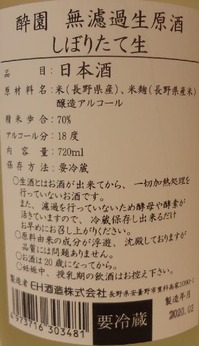 酔園 無濾過生原酒
しぼりたて生
品 目：日本酒
原材料名：米(長野県産)、米麹(長野県産)
醸造アルコール
精米歩合：70%
アルコール分：18度
内 容 量：720ml
保存方法：要冷蔵
○生酒とはお酒が出来てから、一切加熱処理を
行っていないお酒です。
また、濾過を行っていないため酵母や酵素が
活きていますので、冷蔵保存し出来るだけ
お早めにお召し上がりください。
○原料由来の成分が浮遊、沈殿しておりますが
品質には問題ありません。
○お酒は20歳になってから。
○妊娠中、授乳期の飲酒はお控え下さい。
製造者 EH酒造株式会社 長野県安曇野市豊科高家1090-1
製造年月
要冷蔵
2020.02
4973716303481